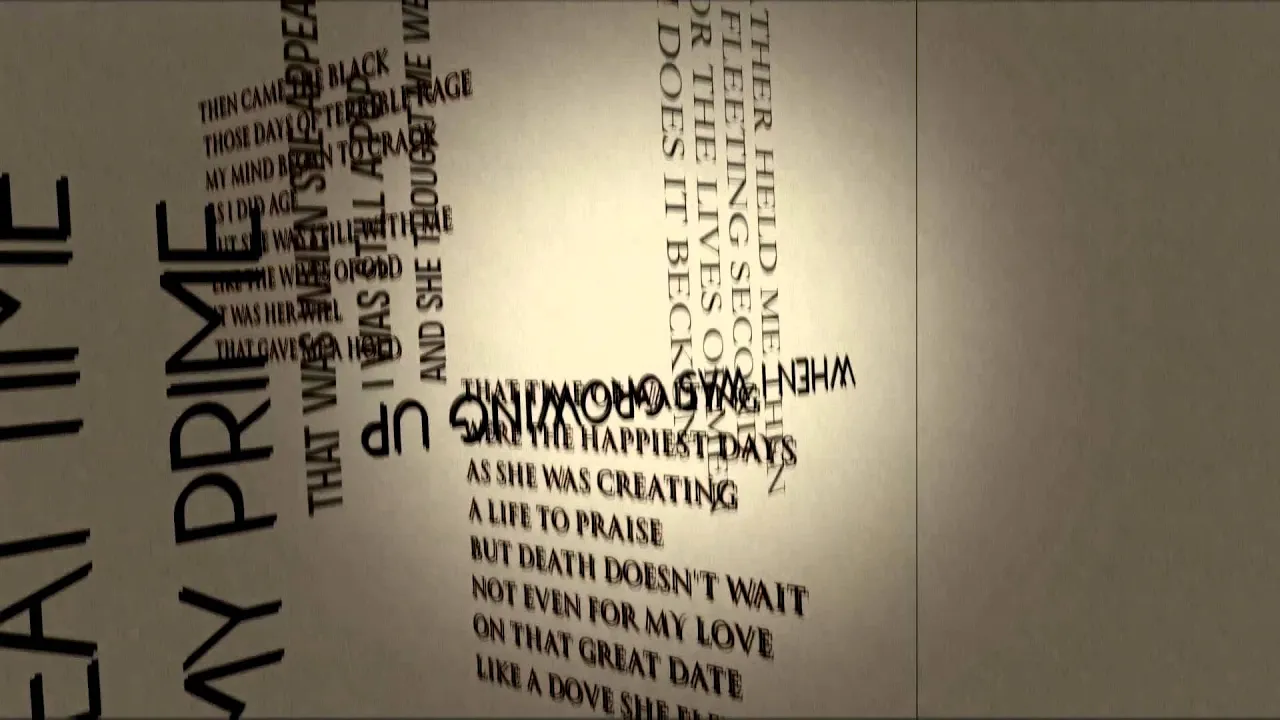 THEN CAME THE BLACK
THOSE DAYS OF TERRIBLE RAGE
MY MIND BEGAN TO CRACK
AS I DID AGE
BUT SHE WAS STILL WITH ME
LIKE THE WIVES OF OLD
IT WAS HER WILL
THAT GAVE ME A HOLD
MY PRIME
THAT WAS WHEN SHE
I WAS STILL
AND SHE THOUGHT WE
DOES IT
OR THE LIVES
FLEETING
HELD ME THEN
WHEN I WAS GROWING UP
THAT TIME
WERE THE HAPPIEST DAYS
AS SHE WAS CREATING
A LIFE TO PRAISE
BUT DEATH DOESN'T WAIT
NOT EVEN FOR MY LOVE
ON THAT GREAT DATE
LIKE A DOVE SHE